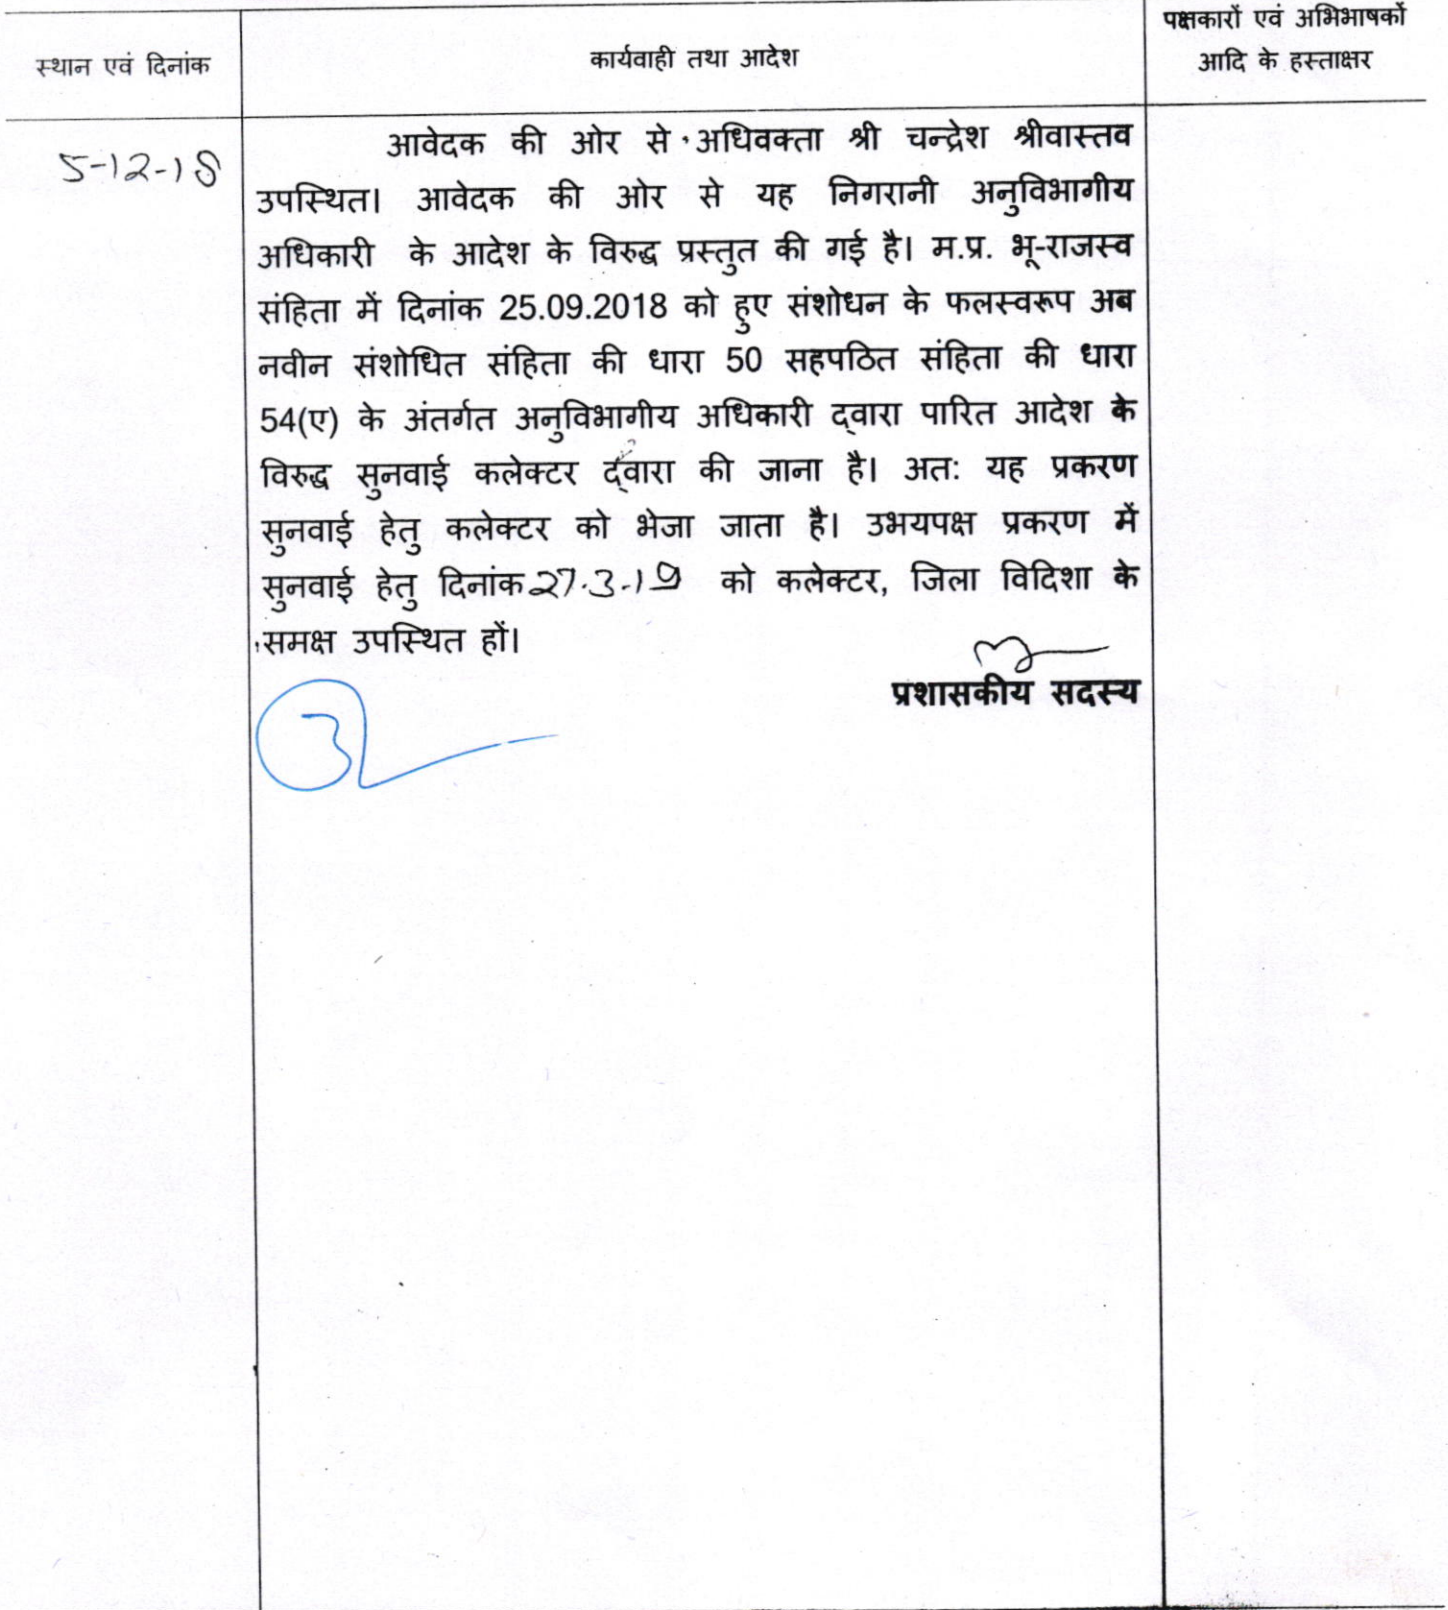 स्थान एवं दिनांक
कार्यवाही तथा आदेश
पक्षकारों एवं अभिभाषकों
आदि के हस्ताक्षर
5-12-18
आवेदक की ओर से अधिवक्ता श्री चन्द्रेश श्रीवास्तव
उपस्थित। आवेदक की ओर से यह निगरानी अनुविभागीय
अधिकारी के आदेश के विरुद्ध प्रस्तुत की गई है। म.प्र. भू-राजस्व
संहिता में दिनांक 25.09.2018 को हुए संशोधन के फलस्वरूप अब
नवीन संशोधित संहिता की धारा 50 सहपठित संहिता की धारा
54(ए) के अंतर्गत अनुविभागीय अधिकारी द्वारा पारित आदेश के
विरुद्ध सुनवाई कलेक्टर द्वारा की जाना है। अत: यह प्रकरण
सुनवाई हेतु कलेक्टर को भेजा जाता है। उभयपक्ष प्रकरण में
सुनवाई हेतु दिनांक 27.3.19 को कलेक्टर, जिला विदिशा के
समक्ष उपस्थित हों।
प्रशासकीय सदस्य